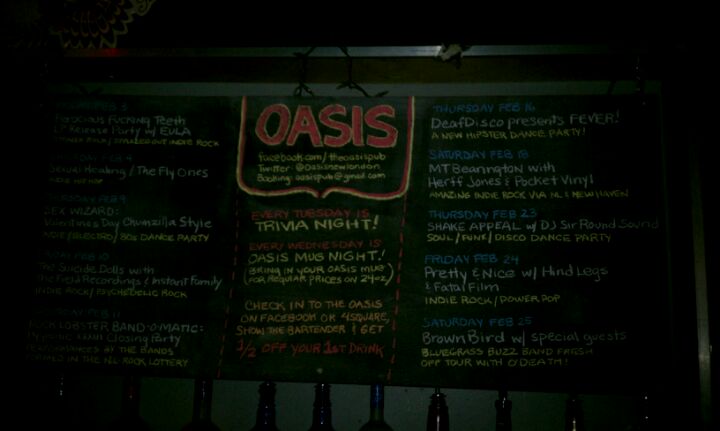 FEB 3
Ferocious Fucking Teeth
LP Release Party w/ EULA
INDIE ROCK
FEB 4
Sexual Healing / The Fly Ones
INDIE HIP HOP
THURSDAY FEB 9
SEX WIZARD:
Valentines Day Chumzilla Style
INDIE/ELECTRO/80s DANCE PARTY
FRIDAY FEB 10
The Suicide Dolls with
Field Recordings & Instant Family
INDIE ROCK/PSYCHEDELIC ROCK
FEB 11
ROCK LOBSTER BAND-O-MATIC:
Hygienic Closing Party
PERFORMANCES BY THE BANDS
FORMED IN THE ROCK LOTTERY
OASIS
facebook.com/theoasispub
Twitter: @Oasisnewlondon
Booking: oasispub@gmail.com
EVERY TUESDAY IS
TRIVIA NIGHT!
EVERY WEDNESDAY IS
OASIS MUG NIGHT!
(BRING IN YOUR OASIS MUG
FOR REGULAR PRICES ON 24oz)
CHECK IN TO THE OASIS
ON FACEBOOK OR 4SQUARE,
SHOW THE BARTENDER & GET
1/2 OFF YOUR 1ST DRINK
THURSDAY FEB 16
DeafDisco presents FEVER!
A NEW HIPSTER DANCE PARTY!
SATURDAY FEB 18
MTBearington with
Herff Jones & Pocket Vinyl
AMAZING INDIE ROCK VIA NL & NEW HAVEN
THURSDAY FEB 23
SHAKE APPEAL w/ DJ Sir Round Sound
SOUL/FUNK/DISCO DANCE PARTY
FRIDAY FEB 24
Pretty & Nice w/ Hind Legs
& Fatal Film
INDIE ROCK/POWER POP
SATURDAY FEB 25
Brown Bird w/ special guests
BLUEGRASS BUZZ BAND FRESH
OFF TOUR WITH O'DEATH!